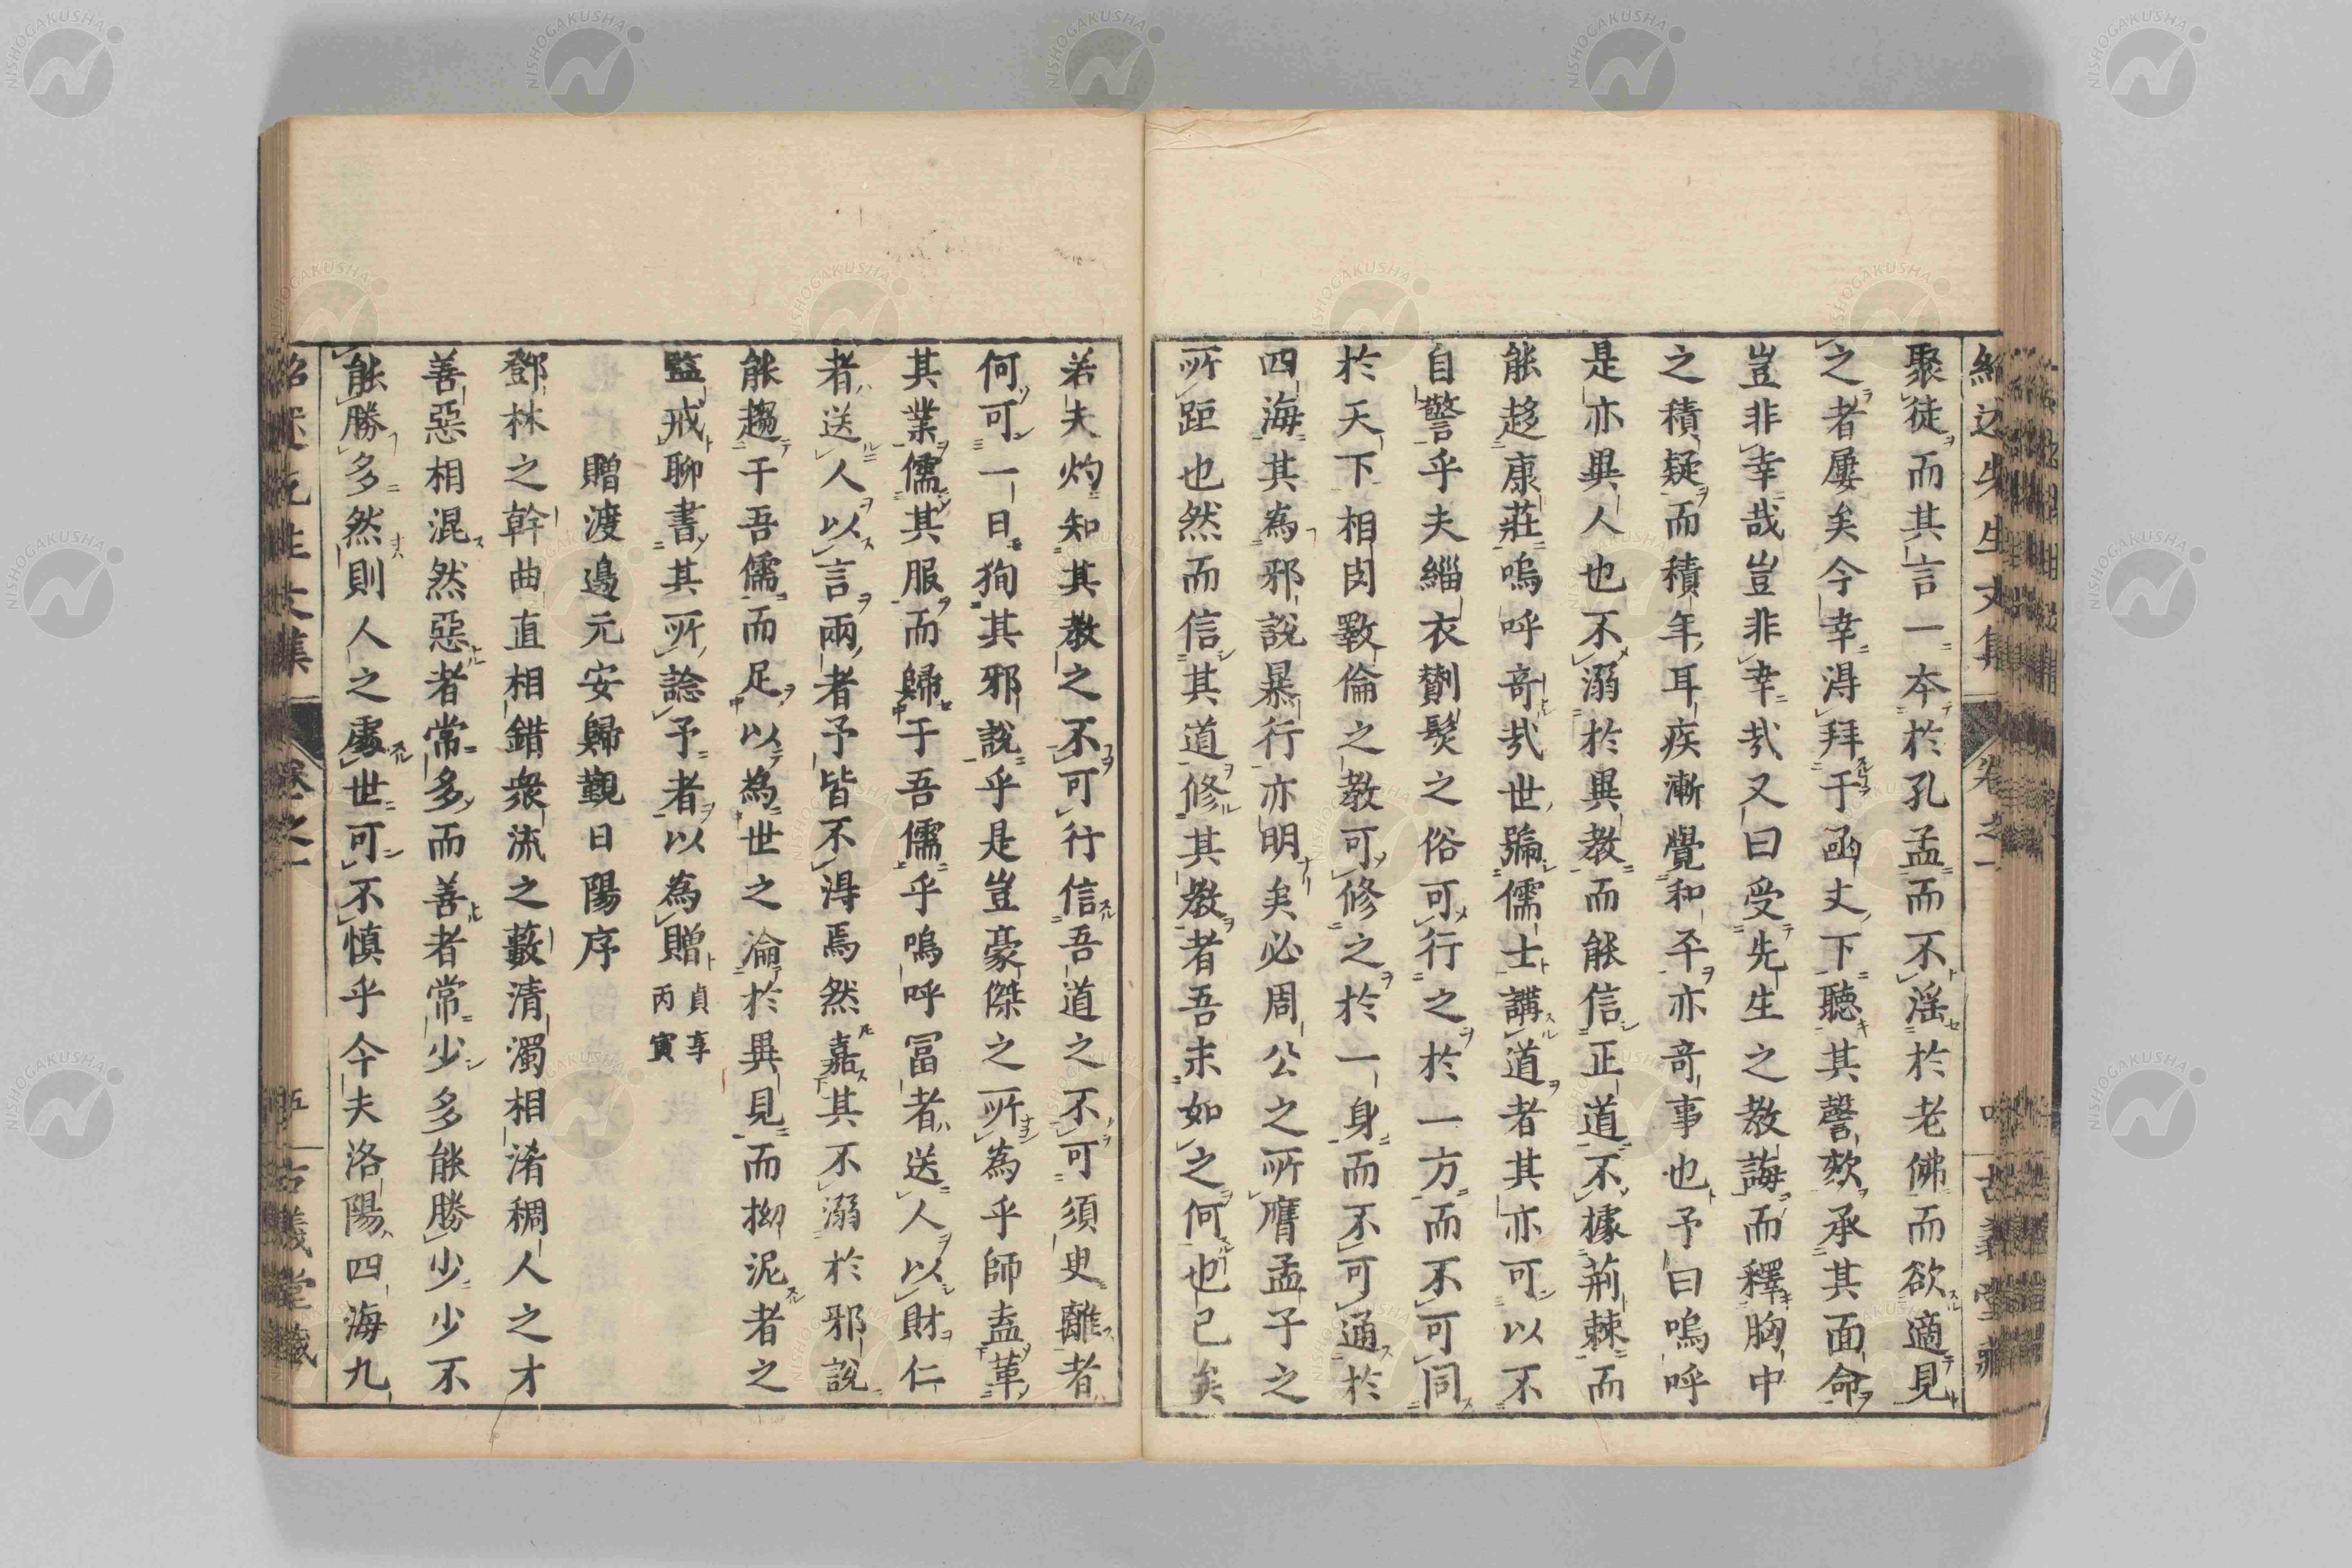 紹述先生文集 卷之一 古義堂藏
聚徒而其言一本於孔孟而不淫於老佛而欲適見
之者屢矣今幸得拜于函丈下聽其謦欬承其面命
豈非幸哉豈非幸哉又曰受先生之教誨而釋胸中
之積疑而積年耳疾漸覺和平亦竒事也予曰嗚呼
是亦異人也不溺於異教而能信正道不據荊棘而
能趍康莊嗚呼竒哉世號儒士講道者其亦可以不
自警乎夫緇衣劗髮之俗可行之於一方而不可同
於天下相因斁倫之教可修之於一身而不可通於
四海其為邪說暴行亦明矣必周公之所膺孟子之
所距也然而信其道修其教者吾未如之何也已矣
若夫灼知其教之不可行信吾道之不可須臾離者
何可一日狥其邪說乎是豈豪傑之所為乎師盍革
其業儒其服而歸于吾儒乎嗚呼冨者送人以財仁
者送人以言兩者予皆不得焉然嘉其不溺於邪說
能趨于吾儒而足以為世之淪於異見而拗泥者之
監戒聊書其所諗予者以為贈 貞享丙寅
贈渡邊元安歸覲日陽序
鄧林之幹曲直相錯衆流之藪清濁相淆稠人之才
善惡相混然惡者常多而善者常少多能勝少少不
能勝多然則人之處世可不慎乎今夫洛陽四海九
紹述先生文集 卷之一 五 古義堂藏